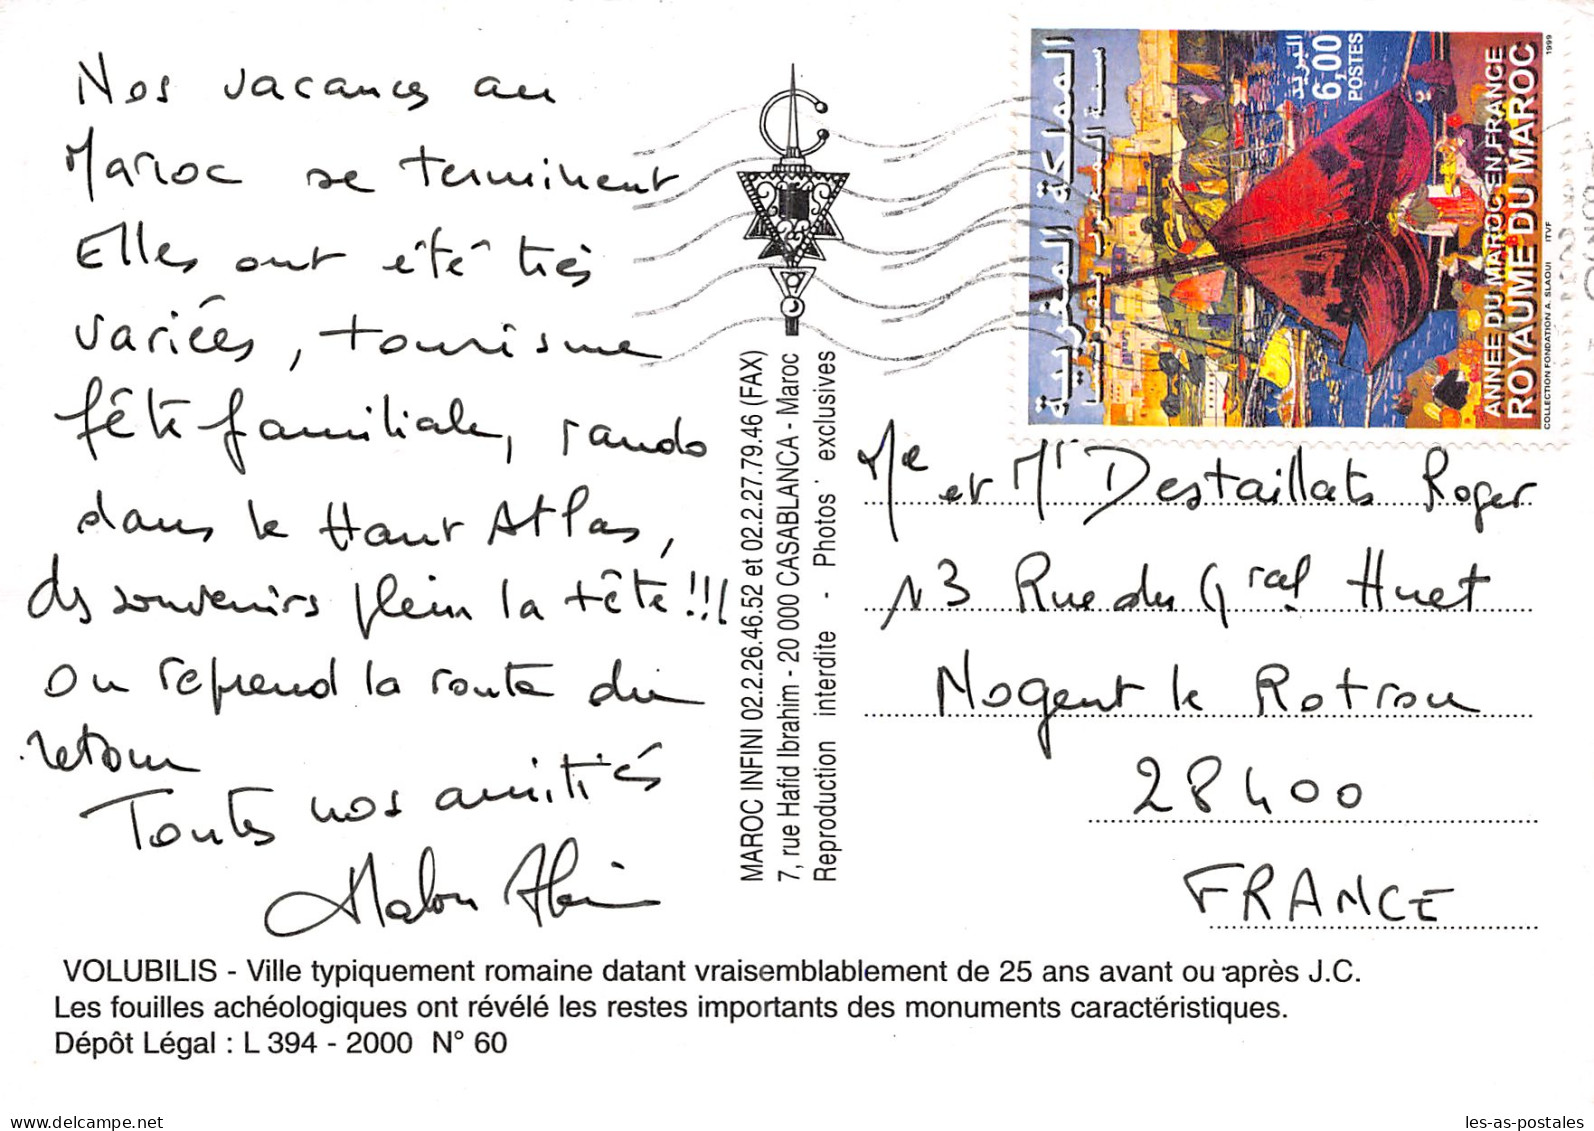 Nos vacances au
Maroc se terminent
Elles ont été très
variées, tourisme
fête familiale, rando
dans le Haut Atlas,
des souvenirs plein la tête!!!
on reprend la route du
retour
Toutes nos amitiés
المملكة المغربية
سنة المغرب بفرنسا
البريد
6,00
POSTES
ANNEE DU MAROC EN FRANCE
ROYAUME DU MAROC
COLLECTION FONDATION A. SLAOUI ITVF 1999
MAROC INFINI 02.2.26.46.52 et 02.2.27.79.46 (FAX)
7, rue Hafid Ibrahim - 20 000 CASABLANCA - Maroc
Reproduction interdite - Photos exclusives
Me et Mr Destaillats Roger
13 Rue du Gral Huet
Nogent le Rotrou
28400
FRANCE
VOLUBILIS - Ville typiquement romaine datant vraisemblablement de 25 ans avant ou après J.C.
Les fouilles achéologiques ont révélé les restes importants des monuments caractéristiques.
Dépôt Légal : L 394 - 2000 N° 60
www.delcampe.net
les-as-postales